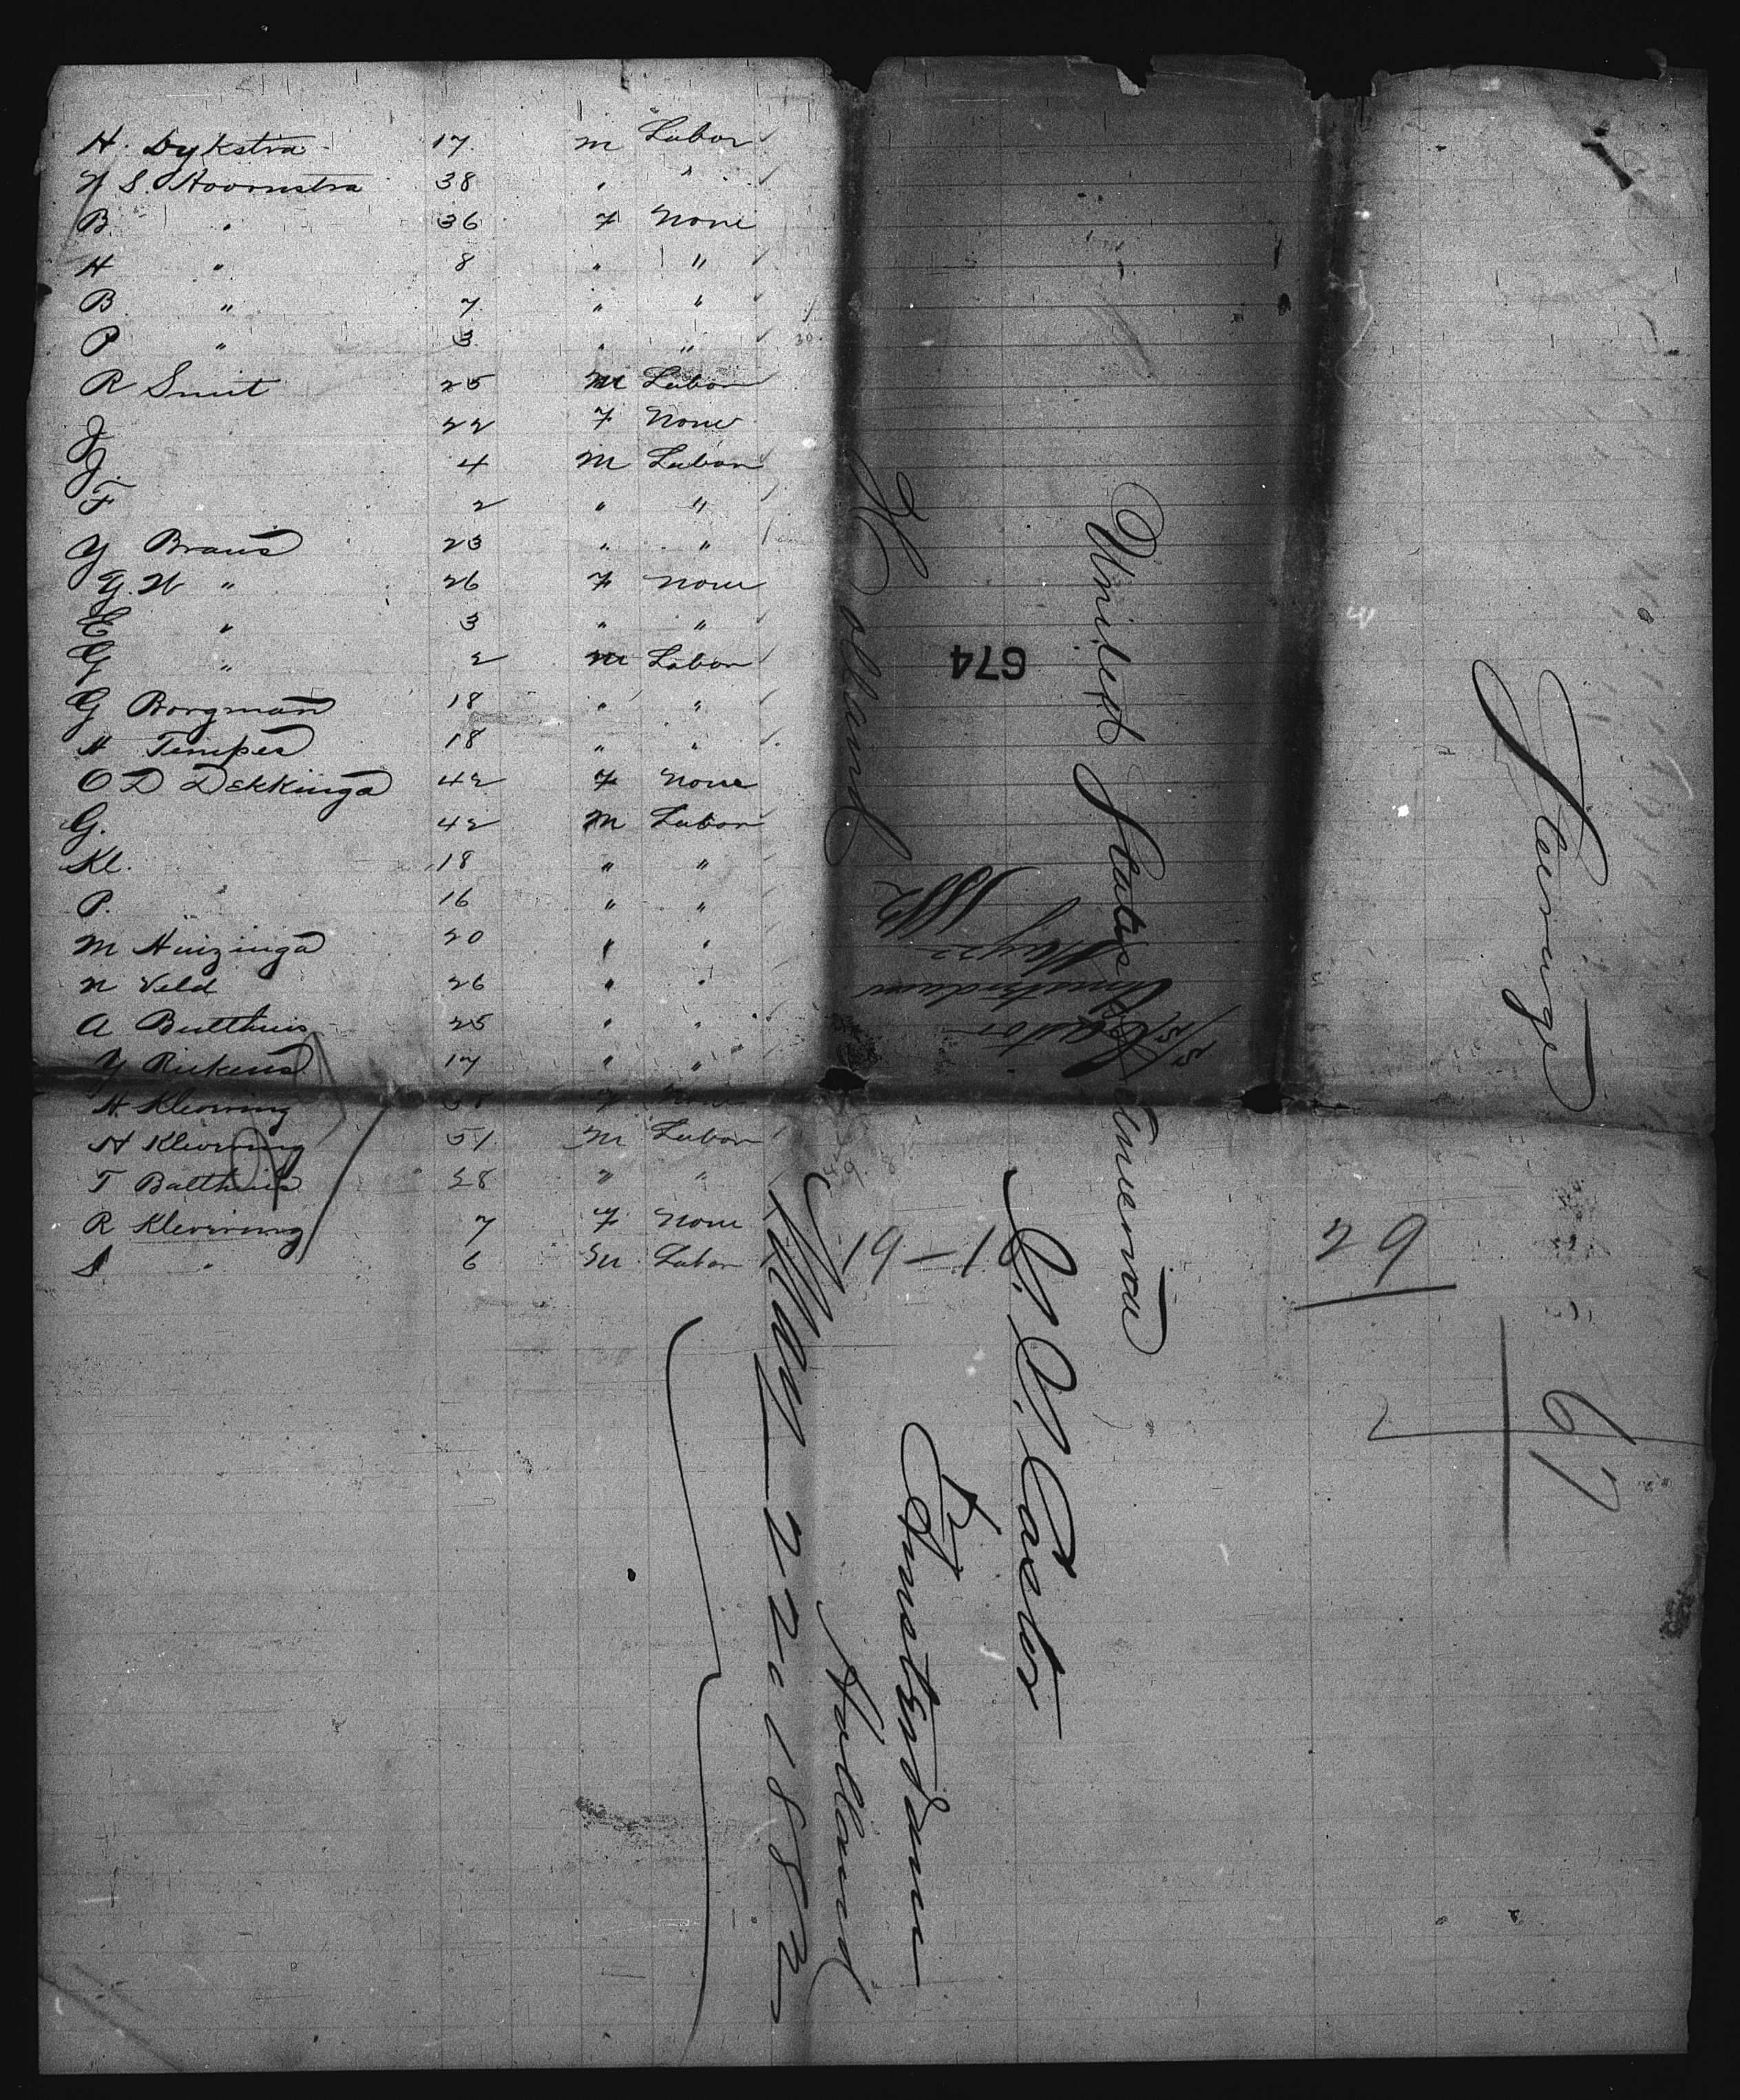 H. Dykstra 17 m Labor
H S. Hoornstra 38 " "
B " 36 F None
H " 8 " "
B " 7 " "
P " 3 " "
R Smit 25 M Labor
J 22 F None
J. 4 M Labor
F 2 " "
Y Braus 23 " "
Y. W " 26 F None
E " 3 " "
G " 2 M Labor
G Borgman 18 " "
H Timpes 18 " "
O D Dekkinga 42 F None
G. 42 M Labor
Kl. 18 " "
P. 16 " "
M Huizinga 20 " "
N Veld 26 " "
A Bulthuis 25 " "
Y Rickens 17 " "
H Klevering F None
H Klevering 51 M Labor
T Balthuis 28 " "
R Klevering 7 F None
" 6 M Labor
Steerage
United States America
Holland
674
S/S Castor
Amsterdam
May 22
1882
19-1
29
67
S. S. Castor
Amsterdam
Holland
May 22: 1882